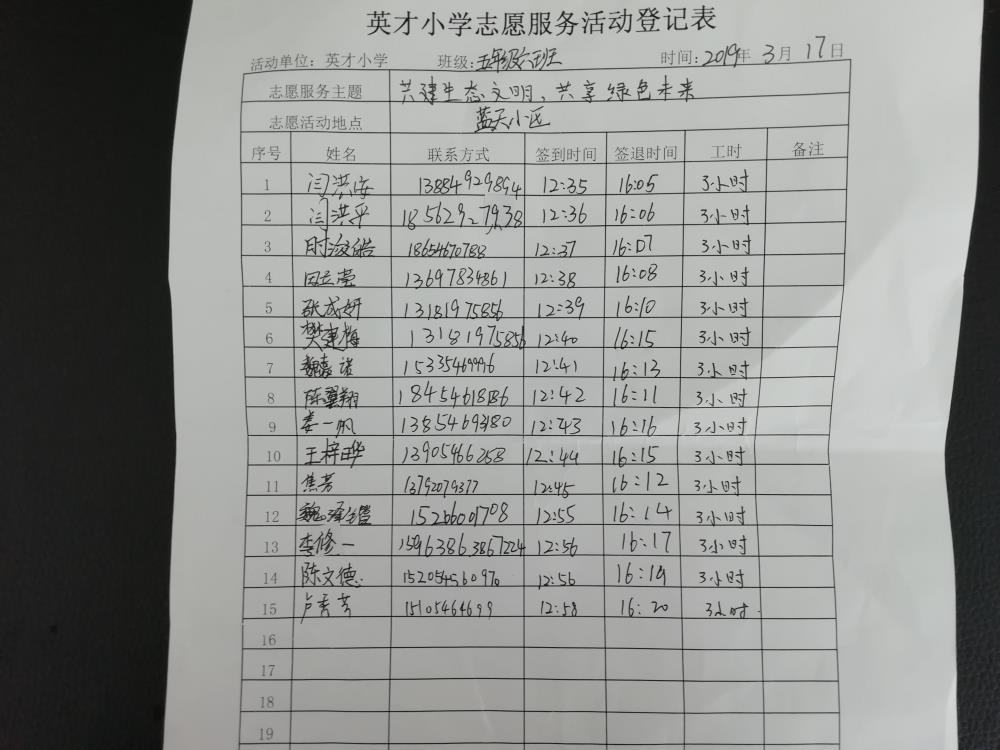 英才小学志愿服务活动登记表
活动单位：英才小学 班级：五年级六班 时间：2019年 3月 17日
志愿服务主题 共建生态文明、共享绿色未来
志愿活动地点 蓝天小区
序号 姓名 联系方式 签到时间 签退时间 工时 备注
1 闫洪安 13884929894 12:35 16:05 3小时
2 闫洪平 18562927938 12:36 16:06 3小时
3 18654670788 12:37 16:07 3小时
4 13697834861 12:38 16:08 3小时
5 张成妍 13181975856 12:39 16:10 3小时
6 樊建梅 13181975856 12:40 16:15 3小时
7 魏嘉诺 15335469996 12:41 16:13 3小时
8 陈翼翔 18454618186 12:42 16:11 3小时
9 姜一帆 13854693180 12:43 16:16 3小时
10 王梓晔 13905466268 12:44 16:15 3小时
11 焦芳 13792079377 12:45 16:12 3小时
12 15266001708 12:55 16:14 3小时
13 李修一 12:56 16:17 3小时
14 陈文德 15205456097 12:56 16:19 3小时
15 卢秀芳 15105464699 12:58 16:20 3小时
16
17
18
19